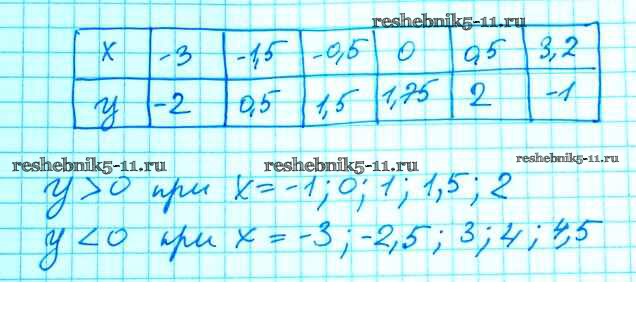 reshebnik5-11.ru
x -3 -1,5 -0,5 0 0,5 3,2
y -2 0,5 1,5 1,75 2 -1
reshebnik5-11.ru reshebnik5-11.ru reshebnik5-11.ru
y > 0 при x = -1; 0; 1; 1,5; 2
y < 0 при x = -3; -2,5; 3; 4; 4,5